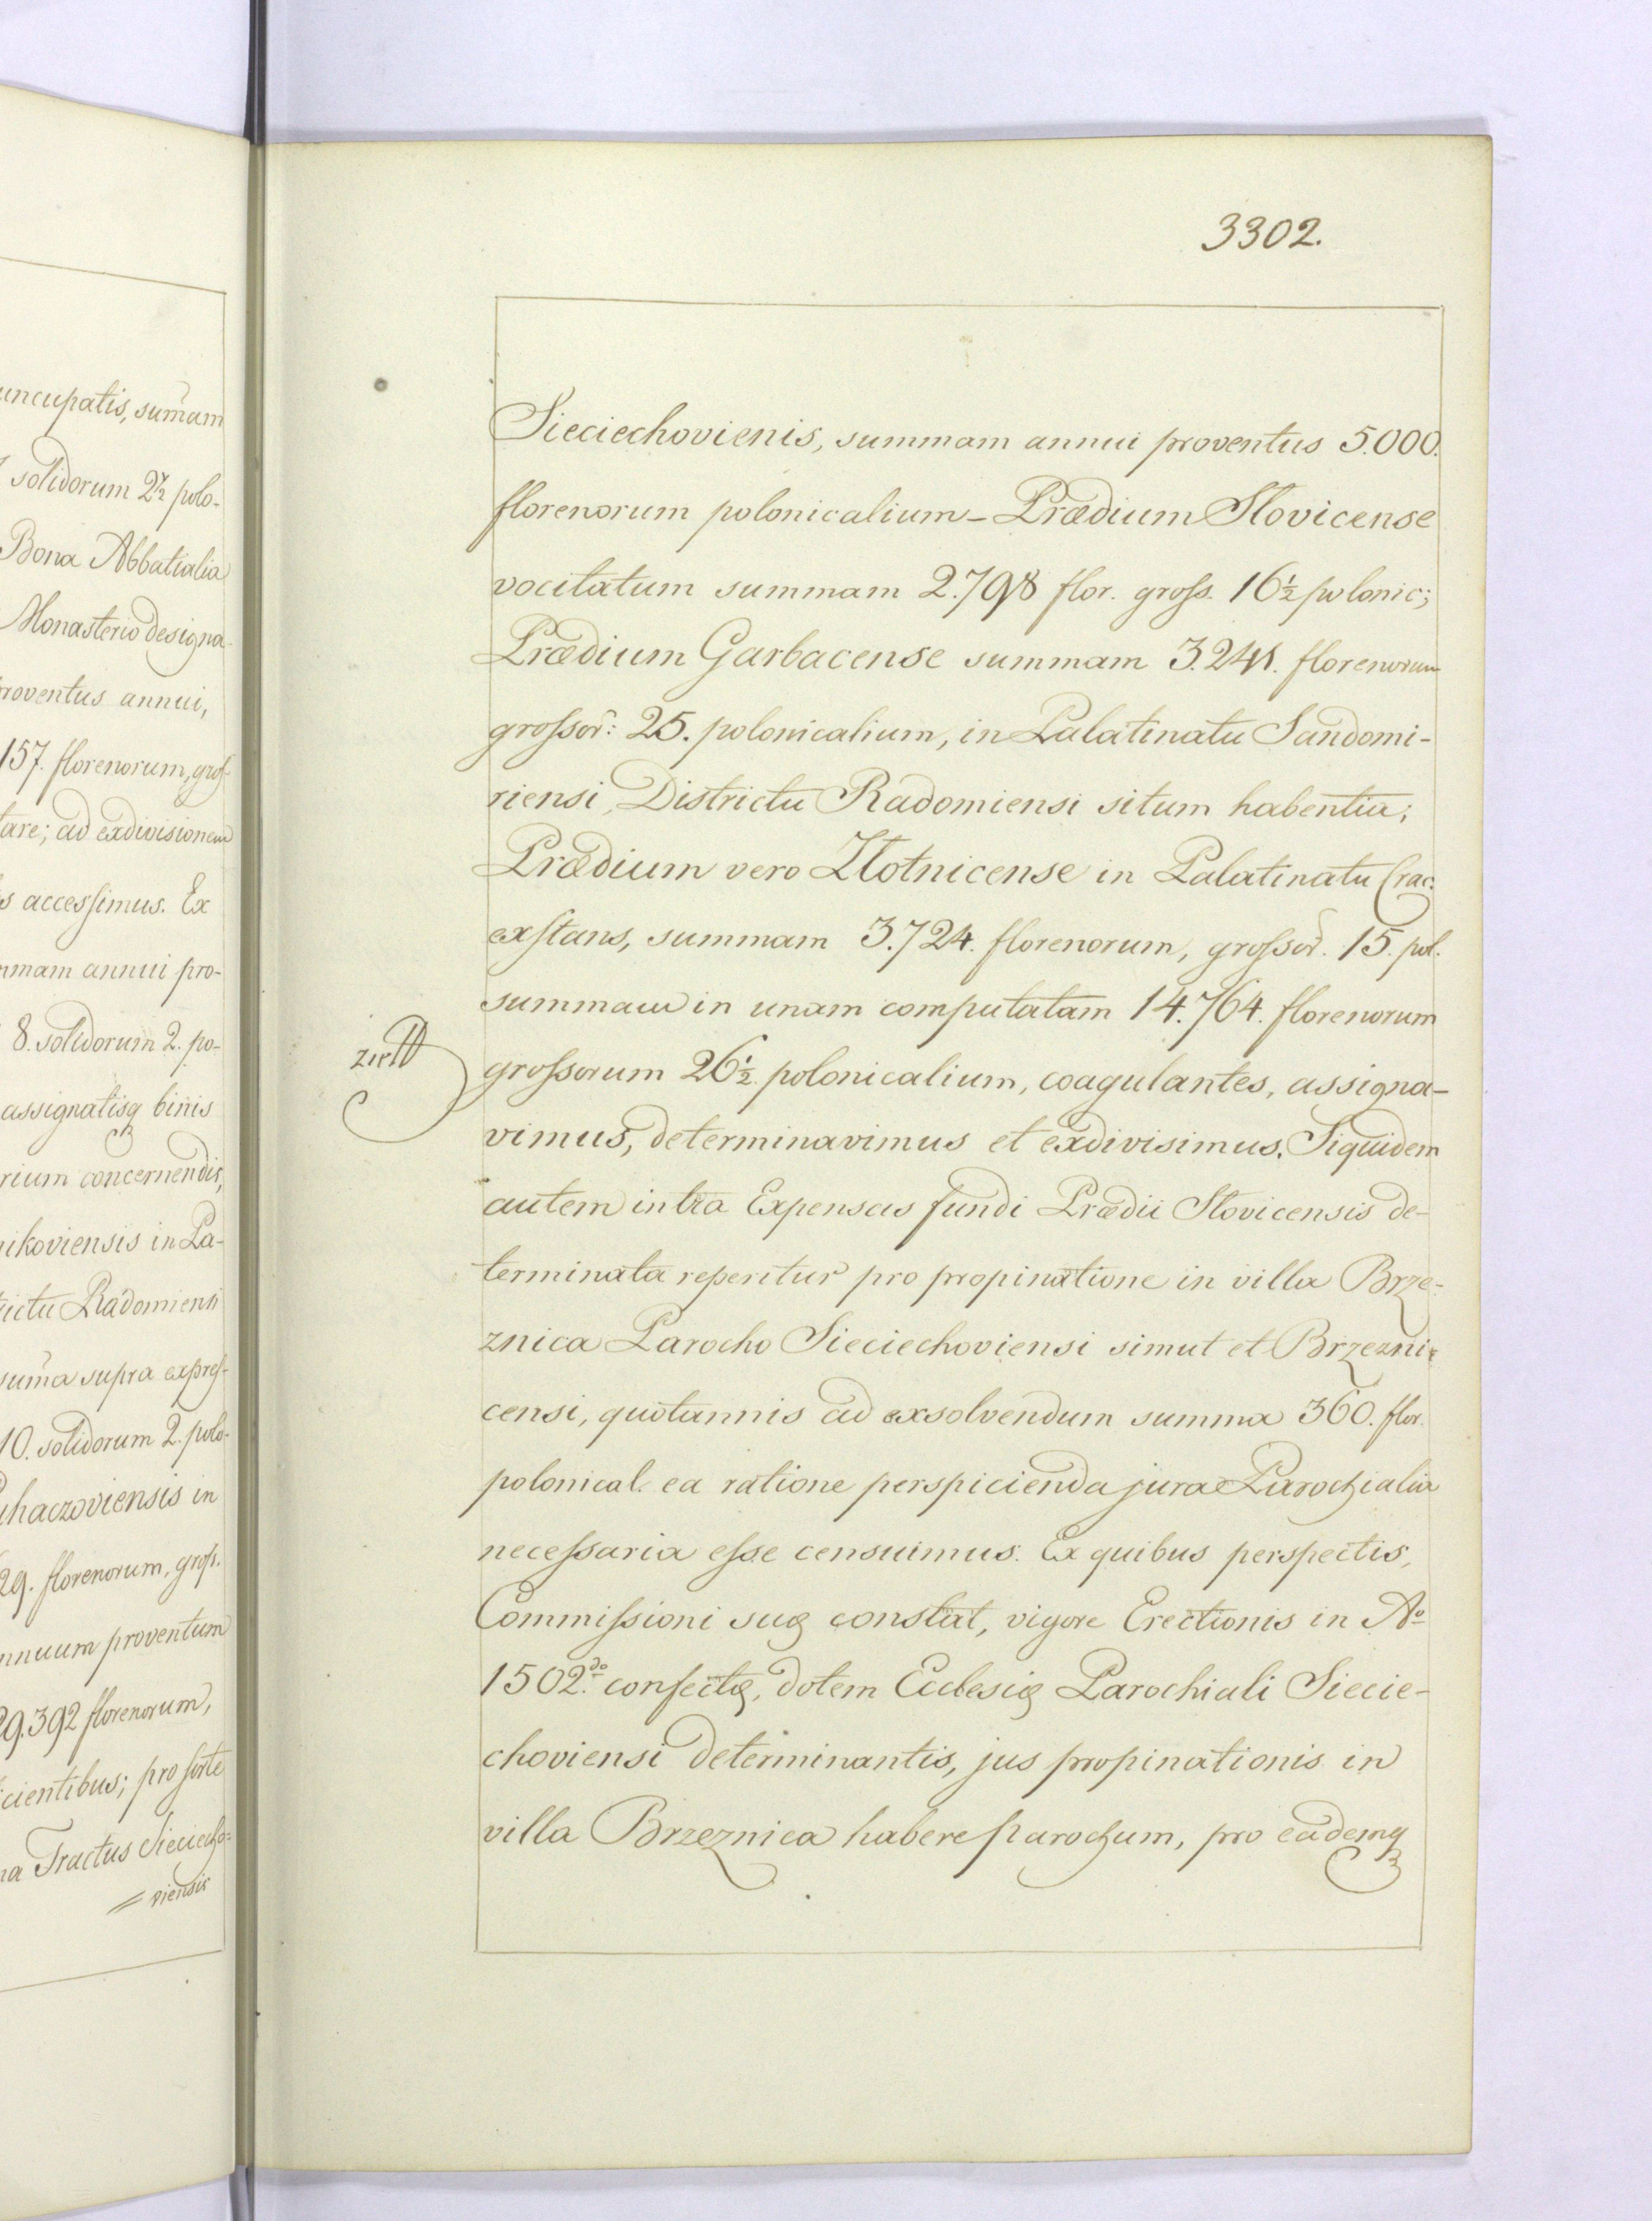 uncupatis, sum̄am
solidorum 2½ polo-
Bona Abbatialia
Monasterio designa-
roventus annui,
157. florenorum, gros-
tare; ad exdivisionem
s accessimus. Ex
mmam annui pro-
8. solidorum 2. po-
assignatisq binis
rium concernendis,
nikoviensis in Pa-
rictu Radomiensi
sum̄a supra expres-
10. solidorum 2. polo-
uhaczoviensis in
29. florenorum, gross.
nnuum proventum
29.392 florenorum,
icientibus; pro sorte
na Tractus Sieciecho=
= viensis
3302.
Sieciechovienis, summam annui proventus 5.000.
florenorum polonicalium – Prædium Slovicense
vocitatum summam 2.798 flor. gross. 16½ polonic;
Prædium Garbacense summam 3.241. florenorum
grossor: 25. polonicalium, in Palatinatu Sandomi-
riensi, Districtu Radomiensi situm habentia;
Prædium vero Zlotnicense in Palatinatu Crac:
exstans, summam 3.724. florenorum, grossor. 15. pol.
summam in unam computatam 14.764. florenorum
grossorum 26½. polonicalium, coagulantes, assigna-
vimus, determinavimus et exdivisimus. Siquidem
autem intra Expensas fundi Prædii Slovicensis de-
terminata reperitur pro propinatione in villa Brze-
znica Parocho Sieciechoviensi simul et Brzezni-
censi, quotannis ad exsolvendum summa 360. flor.
polonical. ea ratione perspicienda jura Parochialia
necessaria esse censuimus. Ex quibus perspectis,
Commissioni suæ constat, vigore Erectionis in Aº
1502.do confectæ, dotem Ecclesiæ Parochiali Siecie-
choviensi determinantis, jus propinationis in
villa Brzeznica habere Parochum, pro eademq